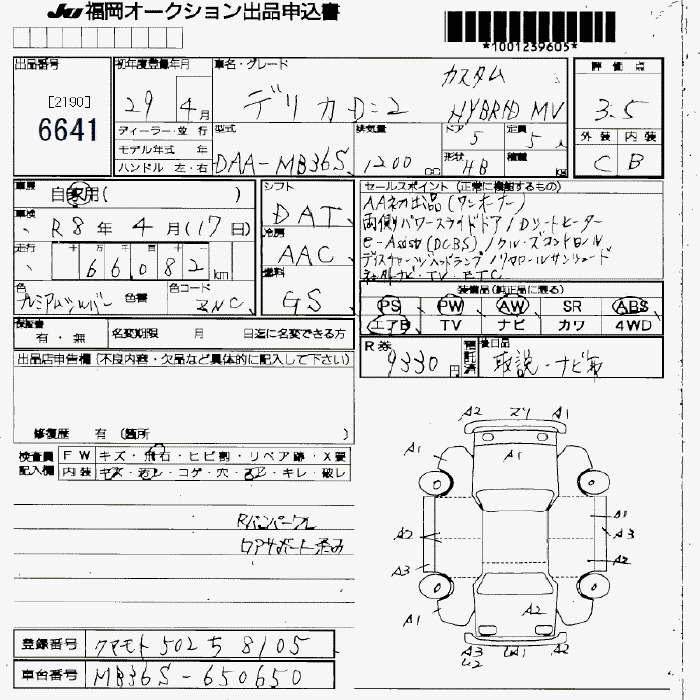 JU 福岡オークション出品申込書
*1001239605*
出品番号
[2190]
6641
初年度登録年月
29年 4月
車名・グレード
カスタム
デリカD:2 HYBRID MV
評価点
3.5
外装 内装
C B
ディーラー・並行
モデル年式 年
ハンドル 左・右
型式
DAA-MB36S
排気量
1200 cc
ドア 5
形状 HB
定員 5人
積載 kg
車歴
自家用( )
車検
R8年 4月(17日)
走行
十万 万 千 百 十
66082 km
色
プレミアムシルバー
色替
色コード
ZNC
シフト
DAT
冷房
AAC
燃料
GS
セールスポイント(正常に機能するもの)
AAネカ出品(ワンオーナー)
両側パワースライドドア/Dシートヒーター
e-Assist(DCBS)/クルーズコントロール
ディスチャージヘッドランプ/リヤロールサンシェード
社外ナビ・TV・ETC
装備品(純正品に限る)
PS PW AW SR ABS
エアB TV ナビ カワ 4WD
保証書
有・無
名変期限 月 日迄に名変できる方
R券
9330円
預託済
後日品
取説・ナビ取
出品店申告欄(不良内容・欠品など具体的に記入して下さい)
修復歴 有(箇所 )
検査員記入欄
FW キズ・飛石・ヒビ割・リペア跡・X要
内装 キズ・汚レ・コゲ・穴・ヌレ・キレ・破レ
Rバンパーズレ
ロアサポート歪み
A2 ズリ A1
A1 A1 A1
A1
A2 A3
A2
A3 A2
A1 A2 A1
A3 U2 UA1 A2
登録番号 クマモト 502 ち 8105
車台番号 MB36S-650650